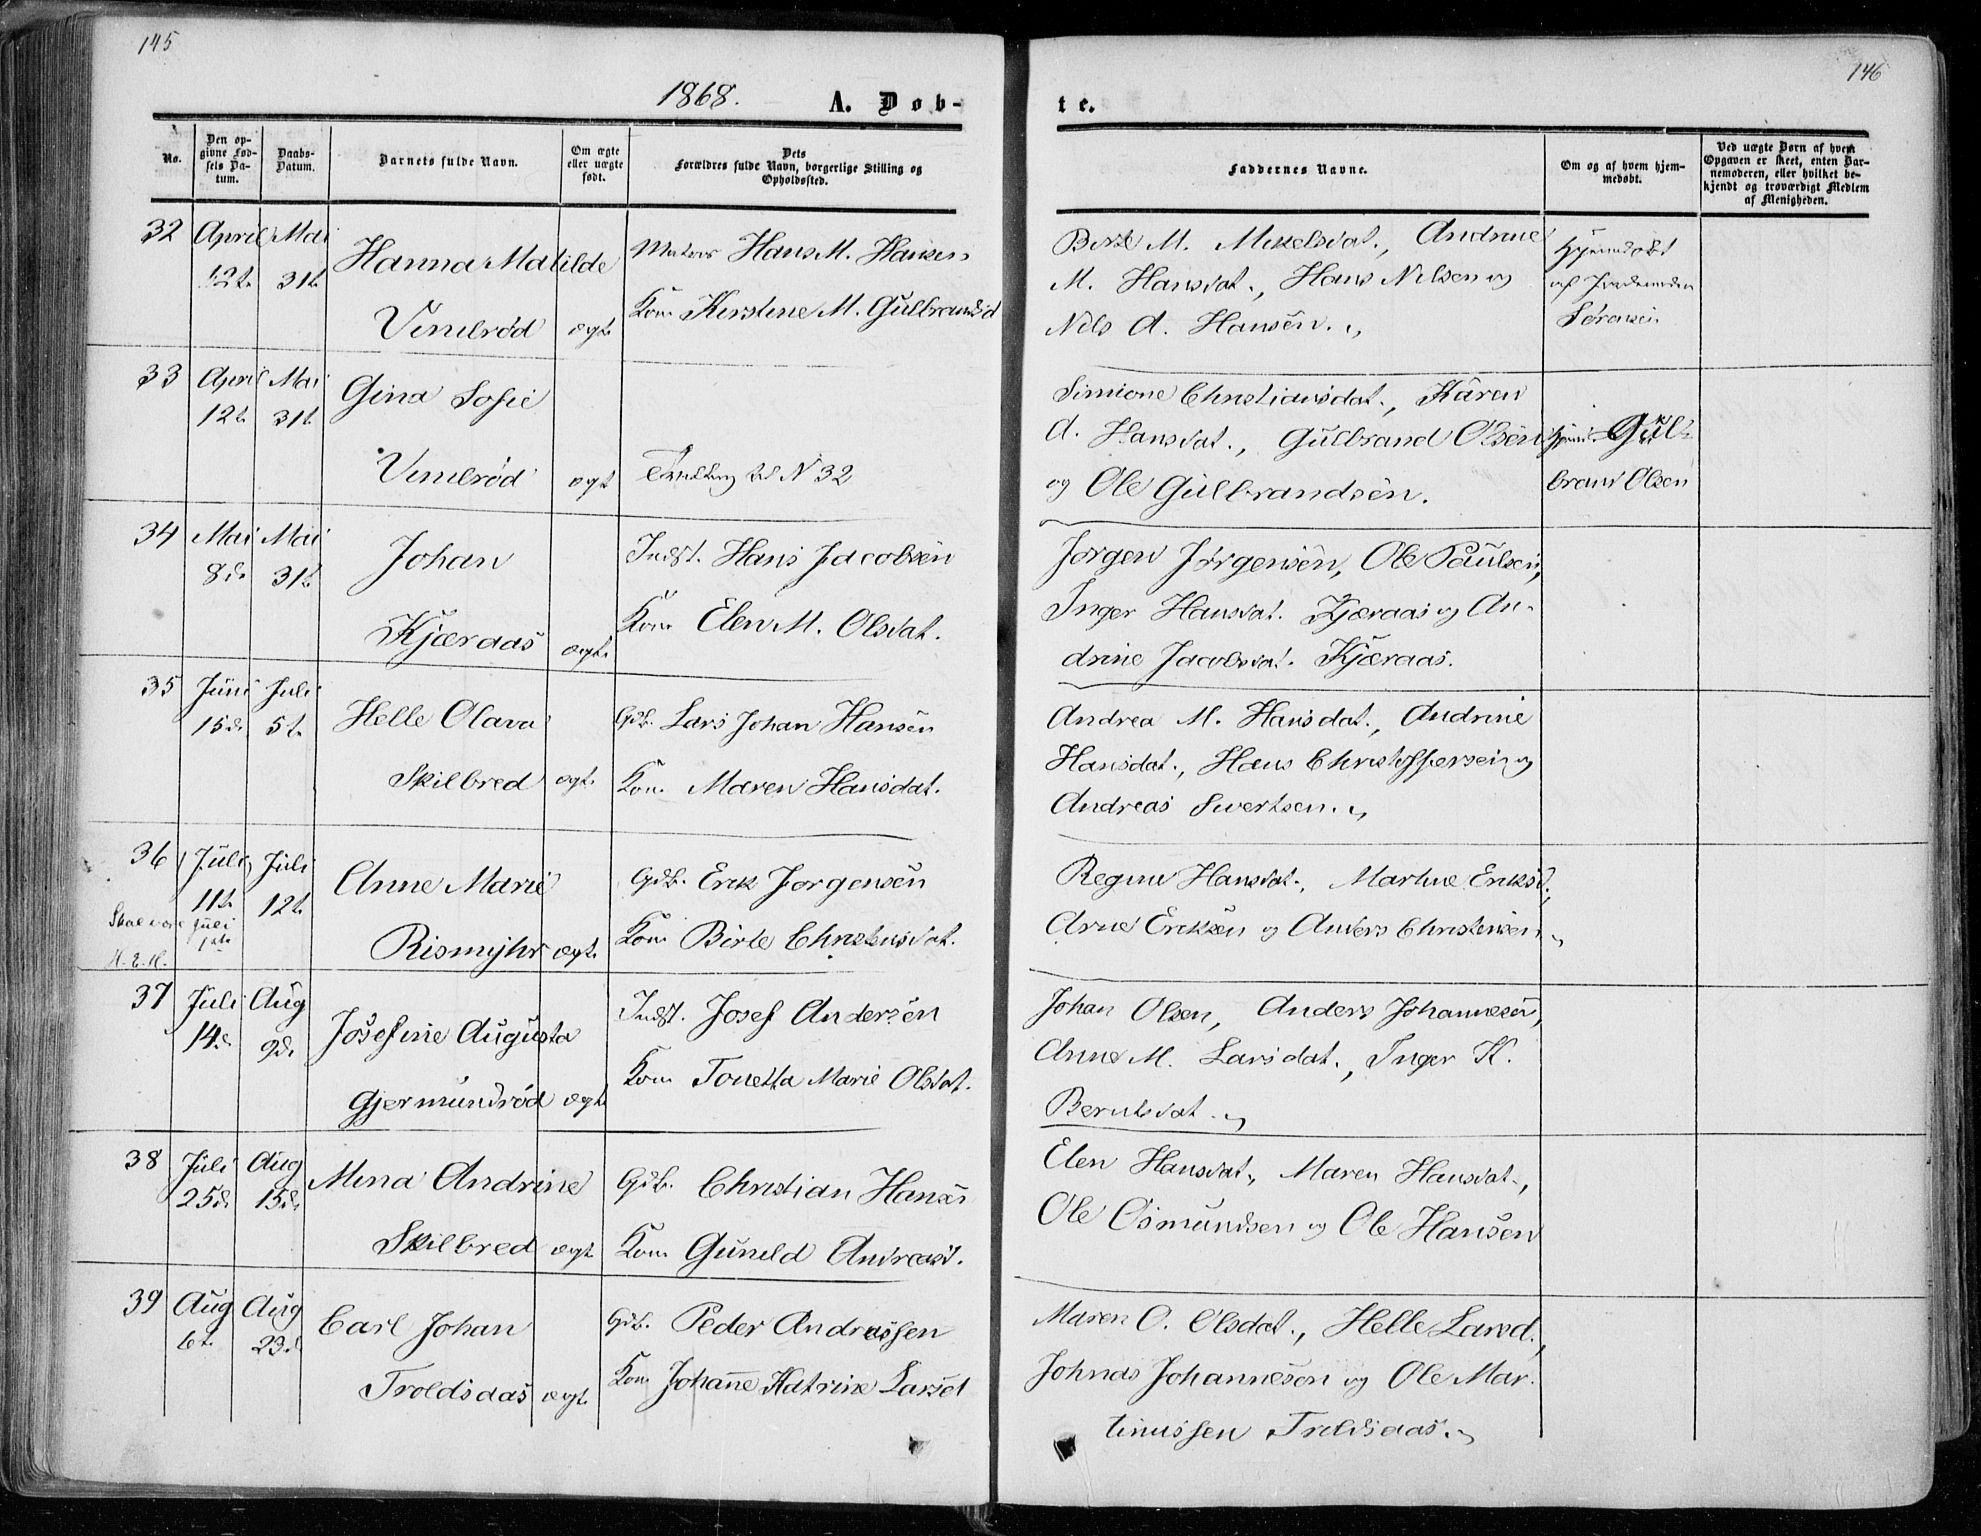 145
146
1868. A. Døb-
te.
No.
Den op-
givne Fød-
sels Da-
tum.
Daabs-
Datum.
Barnets fulde Navn.
Om ægte
eller uægte
født.
Dets
Forældres fulde Navn, borgerlige Stilling og
Opholdssted.
Faddernes Navne.
Om og af hvem hjem-
medøbt.
Ved uægte Børn af hvem
Opgaven er skeet, enten Bar-
nemoderen, eller hvilket be-
kjendt og troværdigt Medlem
af Menigheden.
32 April Mai
12t. 31t.
Hanna Matilde
Vemlrød ægt.
Hans M. Hansen
Kone Kirstine M. Gulbrandsd
Birte M. Mikelsdat., Andrine
M. Hansdat., Hans Nilsen og
Nils A. Hansen.
Hjemdøbt
af
Sørensen
33 April Mai
12t. 31t.
Gina Sofie
Vemlrød ægt
Tvilling til N 32
Simione Christiansdat., Karen
A. Hansdat., Gulbrand Olsen
og Ole Gulbrandsen.
Hjemd. Gul-
brand Olsen
34 Mai Mai
8d. 31t.
Johan
Kjæraas ægt.
Indst. Hans Jacobsen
Kone Elen M. Olsdat.
Jørgen Jørgensen, Ole Paulsen,
Inger Hansdat. Kjæraas og An-
drine Jacobsdat. Kjæraas.
35 Juni Juli
15d. 5t.
Helle Olava
Skilbred ægt.
Gdb. Lars Johan Hansen
Kone Maren Hansdat.
Andrea M. Hansdat., Andrine
Hansdat., Hans Christoffersen og
Andreas Sivertsen.
36 Juli Juli
11t. 12t.
Skal være Juli
1ste
H. E. H.
Anne Marie
Rismyhr ægt.
Gdb. Erik Jørgensen
Kone Birte Christensdat.
Regine Hansdat., Martine Eriksd.,
Arne Eriksen og Anders Christensen
37 Juli Aug
14d. 9d.
Josefine Augusta
Gjermundrød ægt
Indst. Josef Andersen
Kone Tonetta Marie Olsdat.
Johan Olsen, Anders Johannesen,
Anne M. Larsdat., Inger K.
Berntsdat.
38 Juli Aug
25d. 15d.
Mina Andrine
Skilbred ægt
Gdb. Christian Hansen
Kone Guneld Andreasd.
Elen Hansdat., Maren Hansdat.,
Ole Osmundsen og Ole Hansen
39 Aug Aug
6t. 23d.
Carl Johan
Troldsaas ægt.
Gdb. Peder Andreassen
Kone Johanne Katrine Larsd
Maren O. Olsdat., Helle Larsd.,
Johnas Johannesen og Ole Mar-
tinussen Troldsaas.